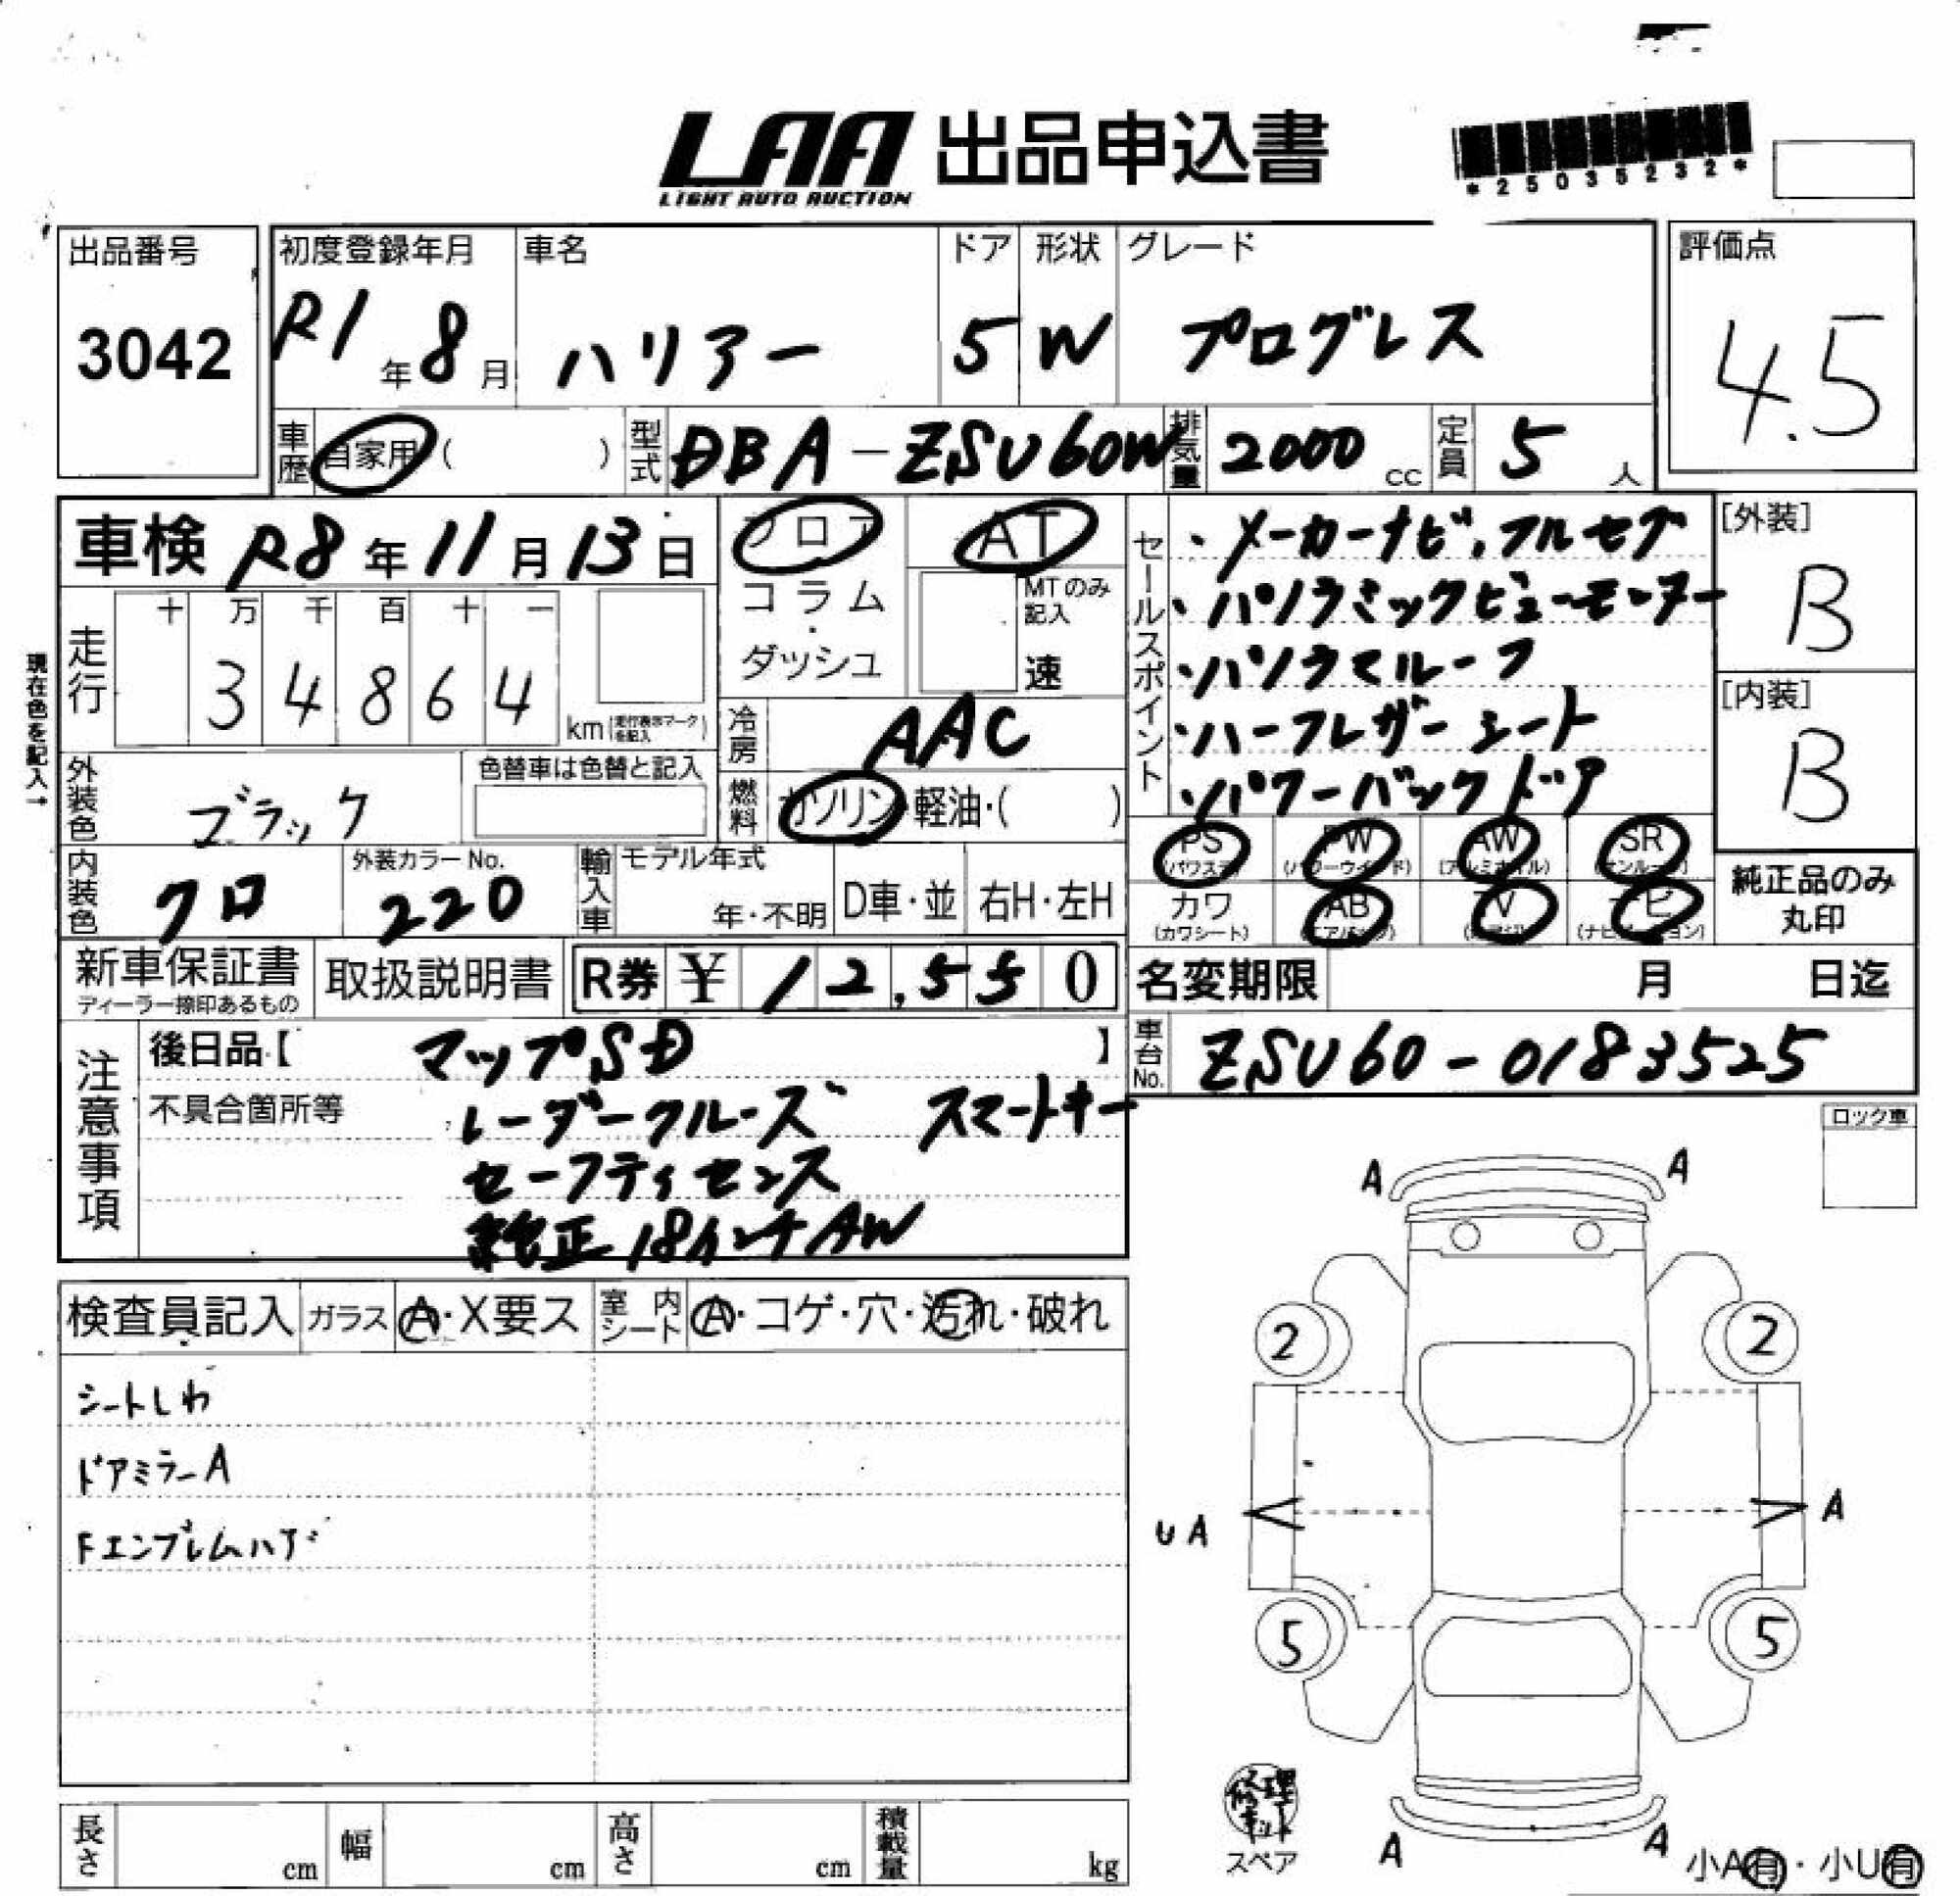 LAA 出品申込書
LIGHT AUTO AUCTION
*25035232*
出品番号
3042
初度登録年月
R1年8月
車名
ハリアー
ドア
5
形状
W
グレード
プログレス
評価点
4.5
車歴
自家用( )
型式
DBA-ZSU60W
排気量
2000cc
定員
5人
車検 R8年11月13日
フロア
コラム・
ダッシュ
AT
MTのみ記入
速
セールスポイント
・メーカーナビ,フルセグ
・パノラミックビューモニター
・パノラマルーフ
・ハーフレザーシート
・パワーバックドア
[外装]
B
[内装]
B
現在色を記入→
走行
十 万 千 百 十 一
3 4 8 6 4
km(走行表示マークを記入)
冷房
AAC
外装色
ブラック
色替車は色替と記入
燃料
ガソリン・軽油・( )
PS
(パワステ)
PW
(パワーウインド)
AW
(アルミホイル)
SR
(サンルーフ)
カワ
(カワシート)
AB
(エアバッグ)
TV
ナビ
(ナビゲーション)
純正品のみ
丸印
内装色
クロ
外装カラーNo.
220
輸入車
モデル年式
年・不明
D車・並
右H・左H
新車保証書
ディーラー捺印あるもの
取扱説明書
R券 ¥12,550
名変期限 月 日迄
車台No.
ZSU60-0183525
注意事項
後日品【 マップSD 】
不具合箇所等
レーダークルーズ スマートキー
セーフティセンス
純正18インチAW
ロック車
検査員記入
ガラス
A・X要ス
室内シート
A・コゲ・穴・汚れ・破れ
シートしわ
ドアミラーA
FエンブレムハゲA A
2 2
UA A
5 5
修理キット
スペア
A A
小A有・小U有
長さ cm
幅 cm
高さ cm
積載量 kg